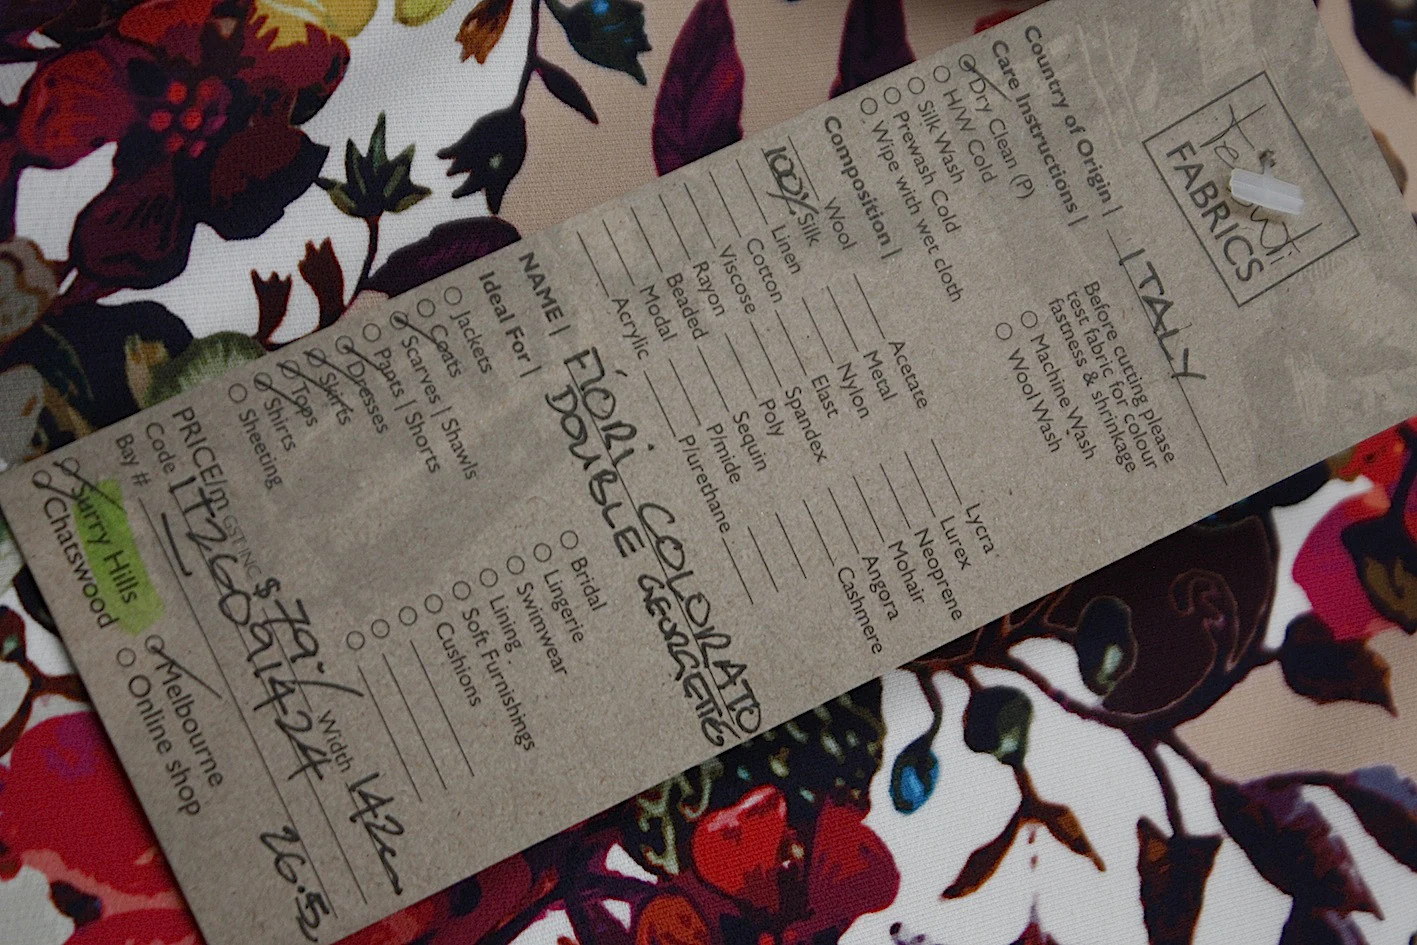 FABRICS
Country of Origin | ITALY
Care Instructions |
Dry Clean (P)
H/W Cold
Silk Wash
Prewash Cold
Wipe with wet cloth
Before cutting please
rest fabric for colour
fastness & shrinkage
Machine Wash
Wool Wash
Composition |
Wool
100% Silk
Linen
Cotton
Viscose
Rayon
Beaded
Modal
Acrylic
Acetate
Metal
Nylon
Elast
Spandex
Poly
Sequin
P/mide
P/urethane
Lycra
Lurex
Neoprene
Mohair
Angora
Cashmere
NAME | FIORI COLORATO
DOUBLE GEORGETTE
Ideal For |
Jackets
Coats
Scarves | Shawls
Pants | Shorts
Dresses
Skirts
Tops
Shirts
Sheeting
Bridal
Lingerie
Swimwear
Lining
Soft Furnishings
Cushions
PRICE/m GST INC $79.- Width 142cm
Code
Bay #
26.5
Surry Hills
Chatswood
Melbourne
Online shop